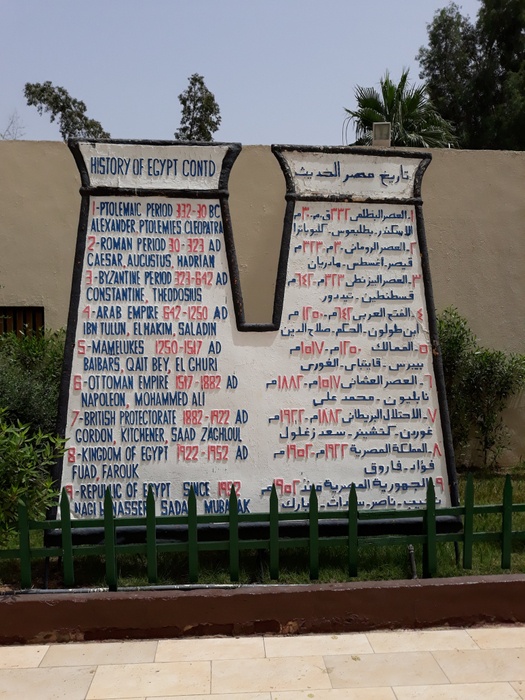 HISTORY OF EGYPT CONTD
1-PTOLEMAIC PERIOD 332-30 BC
ALEXANDER, PTOLEMIES CLEOPATRA
2-ROMAN PERIOD 30-323 AD
CAESAR, AUGUSTUS, HADRIAN
3-BYZANTINE PERIOD 323-642 AD
CONSTANTINE, THEODOSIUS
4-ARAB EMPIRE 642-1250 AD
IBN TULUN, ELHAKIM, SALADIN
5-MAMELUKES 1250-1517 AD
BAIBARS, QAIT BEY, EL GHURI
6-OTTOMAN EMPIRE 1517-1882 AD
NAPOLEON, MOHAMMED ALI
7-BRITISH PROTECTORATE 1882-1922 AD
GORDON, KITCHENER, SAAD ZAGHLOUL
8-KINGDOM OF EGYPT 1922-1952 AD
FUAD, FAROUK
9-REPUBLIC OF EGYPT SINCE 1952
NAGIB NASSER SADAT MUBARAK
تاريخ مصر الحديث
١ـ العصر البطلمى ٣٣٢ق.م-٣٠م
الإسكندر ـ بطليموس ـ كليوباترا
٢ـ العصر الرومانى ٣٠م-٣٢٣م
قيصر ـ أغسطس ـ هادريان
٣ـ العصر البيزنطى ٣٢٣م-٦٤٢م
قسطنطين ـ تيدور
٤ـ الفتح العربى ٦٤٢م-١٢٥٠م
ابن طولون ـ الحكم ـ صلاح الدين
٥ـ المماليك ١٢٥٠م-١٥١٧م
بيبرس ـ قايتباى ـ الغورى
٦ـ العصر العثمانى ١٥١٧م-١٨٨٢م
نابليون ـ محمد على
٧ـ الاحتلال البريطانى ١٨٨٢م-١٩٢٢م
غوردن ـ كتشينر ـ سعد زغلول
٨ـ المملكة المصرية ١٩٢٢م-١٩٥٢م
فؤاد ـ فاروق
٩ـ الجمهورية المصرية من ١٩٥٢م
نجيب ـ ناصر ـ سادات ـ مبارك